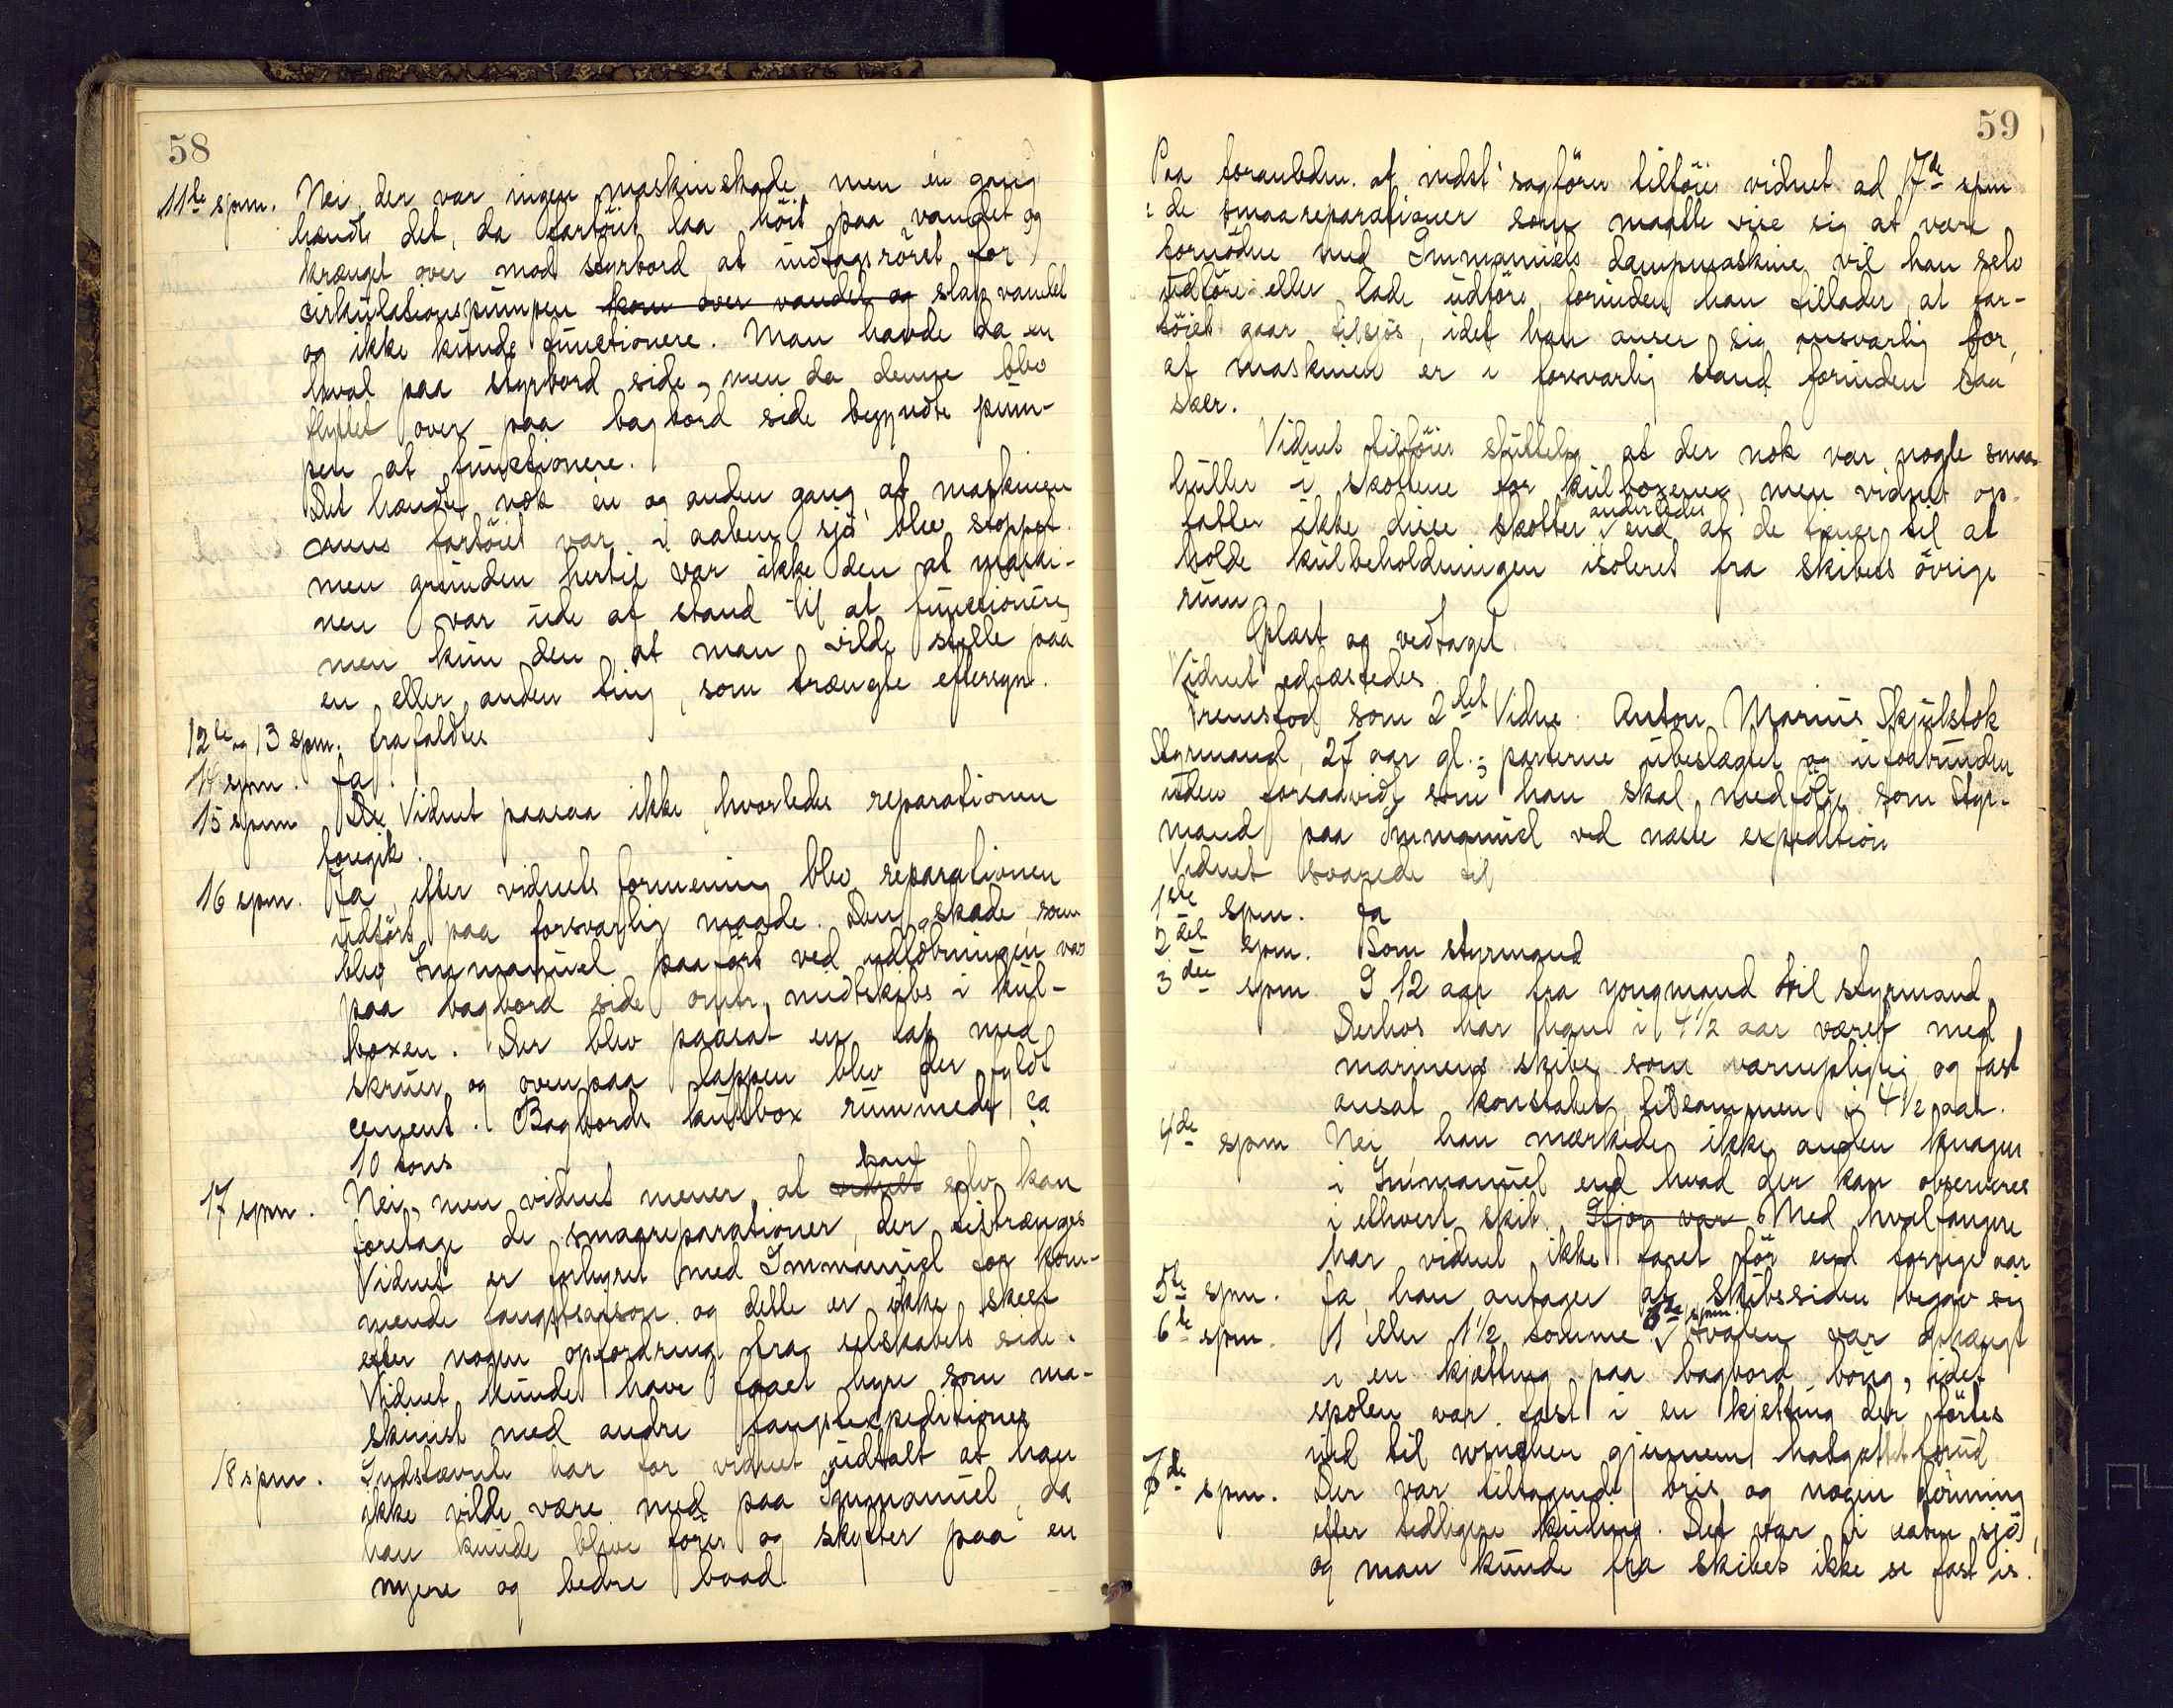 58
11te spm. Nei, der var ingen maskinskade, men én gang
hændte det, da fartöiet laa höit paa vandet og
krænget over mod styrbord at indtagsröret for
cirkulationspumpen kom over vandet og slap vandet
og ikke kunde functionere. Man havde da en
hval paa styrbord side, men da denne blev
flyttet over paa bagbord side begyndte pum-
pen at functionere.
Det hændte nok én og anden gang, at maskinen
mens fartöiet var i aaben sjö blev stoppet
men grunden hertil var ikke den at maski-
nen var ude af stand til at functionere,
men kun den at man vilde stelle paa
en eller anden ting, som trængte eftersyn.
12te og 13 spm. frafaldtes
14 spm. Ja.
15 spm De Vidnet paasaa ikke, hvorledes reparationen
foregik.
16 spm. Ja, efter vidnets formening blev reparationen
udfört paa forsvarlig maade. Den skade, som
blev Immanuel paafört ved udlobningen var
paa bagbord side omtr. midtskibs i kul-
boxen. Der blev paasat en lap med
skruer og ovenpaa lappen blev der fyldt
cement. Bagbords kulbox rummede ca
10 tons
17 spm. Nei, men vidnet mener, at vidnet han selv kan
foretage de smaareparationer, der tiltrænges
Vidnet er forhyret med Immanuel for kom-
mende fangstsaison og dette er ikke skeet
efter nogen opfordring fra selskabets side.
Vidnet kunde have faaet hyre som ma-
skinist med andre fangstexpeditioner
18 spm. Indstævnte har for vidnet udtalt at han
ikke vilde være med paa Immanuel, da
han kunde blive förer og skytter paa en
nyere og bedre baad.
59
Paa foranledn. af indst' sagförer tilföier vidnet ad 17de spm
: de smaareparationer som maatte vise sig at være
fornödne med Immanuels dampmaskine vil han selv
udföre eller lade udföre, forinden han tillader, at far-
töiet gaar tilsjös, idet han anser sig ansvarlig for,
at maskinen er i forsvarlig stand forinden saa
sker.
Vidnet tilföier sluttelig at der nok var nogle smaa
huller i skottene for kulboxerne, men vidnet op-
fatter ikke disse skotter anderledes end at de tjener til at
holde kulbeholdningen isoleret fra skibets övrige
rum
Oplæst og vedtaget.
Vidnet edfæstedes.
Fremstod som 2det Vidne: Anton Marius Skjulstok
Styrmand, 27 aar gl.; parterne ubeslægtet og uforbunden
uden forsaavidt som han skal medfölge som Styr-
mand paa Immanuel ved næste expedition
Vidnet svarede til
1ste spm. Ja
2det spm. Som styrmand
3die spm. I 12 aar fra youngmand til styrmand
Derhos har han i 4 1/2 aar været med
marinens skibe som værnepligtig og fast
ansat konstabel tilsammen i 4 1/2 aar.
4de spm Nei, han mærkede ikke anden knagen
i Immanuel end hvad der kan observeres
i ethvert skib. Ifjor var Med hvalfangere
har vidnet ikke faret för end forrige aar
5te spm. Ja, han antager at skibssiden begav sig
6te spm. 1 eller 1 1/2 tomme 6te spm. Hvalen var ophængt
i en kjætting paa bagbord boug, idet
spolen var fast i en kjetting der förtes
ind til winchen gjennem halsgattet forud
7de spm. Der var tiltagende bris og nogen dönning
efter tidligere kuling. Det var i aaben sjö,
og man kunde fra skibet ikke se fast is.